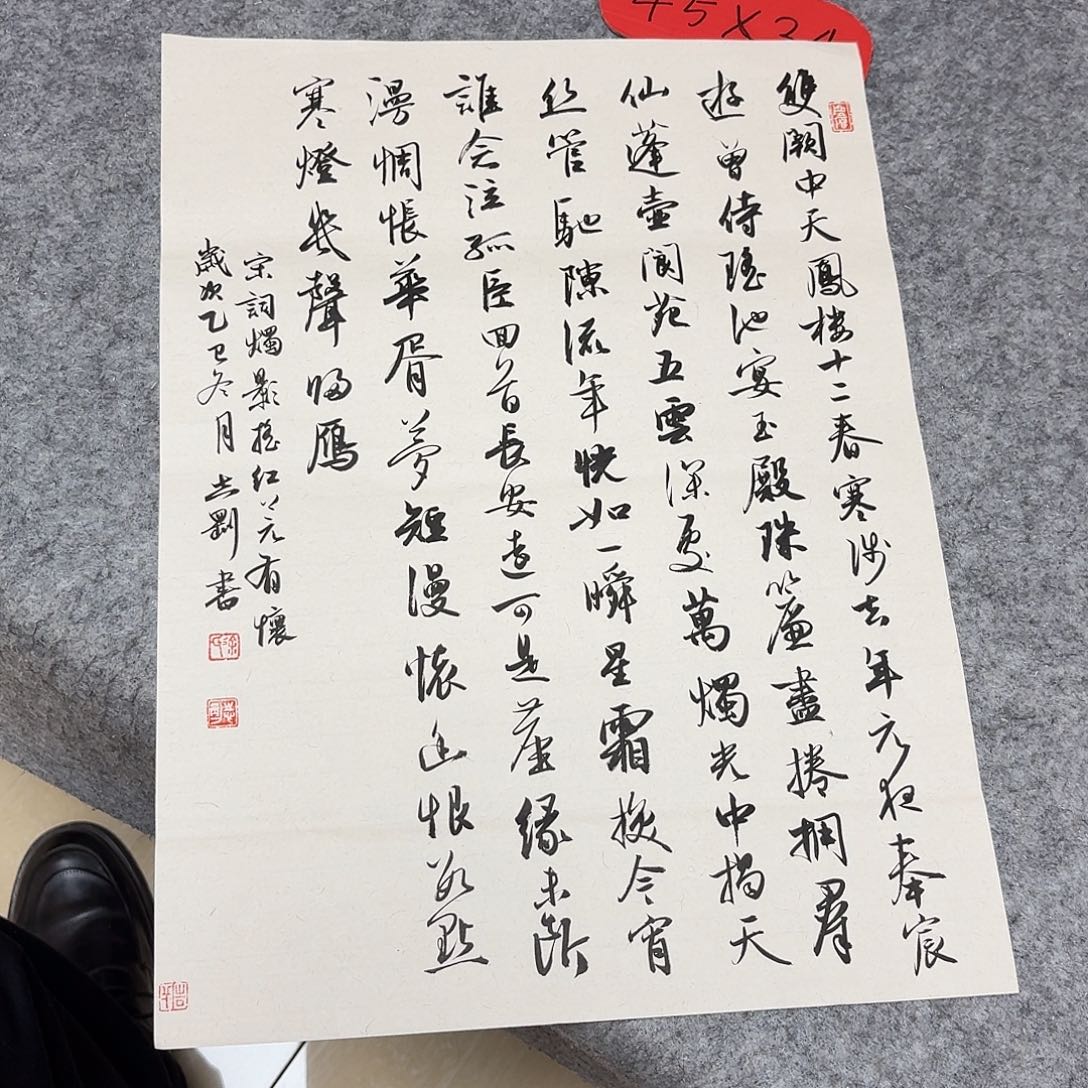 45×34
雙闕中天鳳樓十二春寒淺去年元夜奉宸
游曾侍瑤池宴玉殿珠簾盡捲擁羣
仙蓬壺閬苑五雲深處萬燭光中揭天
丝管馳隙流年恍如一瞬星霜換今宵
誰念泣孤臣回首長安遠可是塵緣未斷
漫惆悵華胥夢短漫懷幽恨數點
寒燈幾聲歸鴈
宋詞燭影搖紅上元有懷
歲次乙巳冬月志剛書